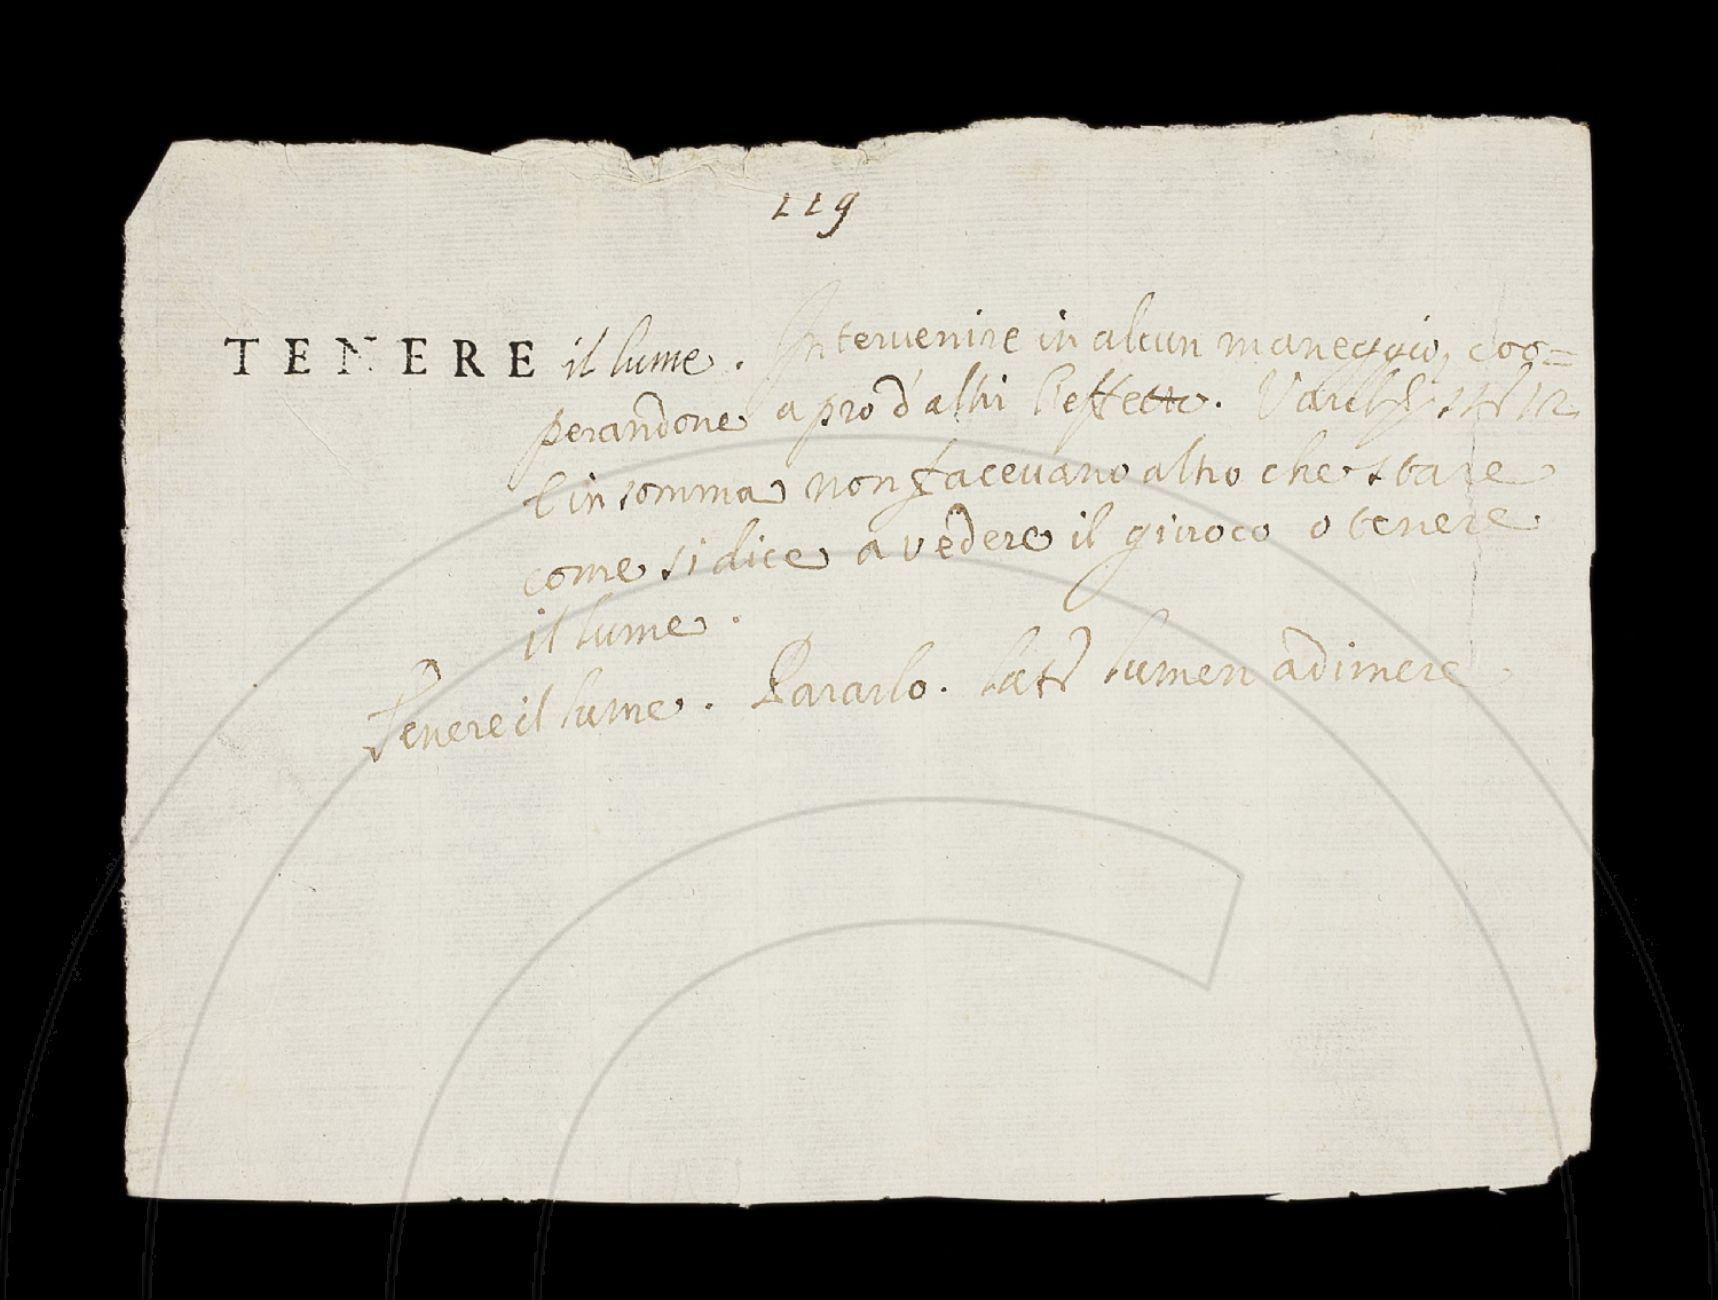 119
TENERE il lume. Intervenire in alcun maneggio, coo=
perandone a pro d'altri l'effetto. Varch. st. 12
E in somma non facevano altro che stare
come si dice a vedere il giuoco o tenere
il lume.
Tenere il lume. Pararlo. lat. lumen adimere